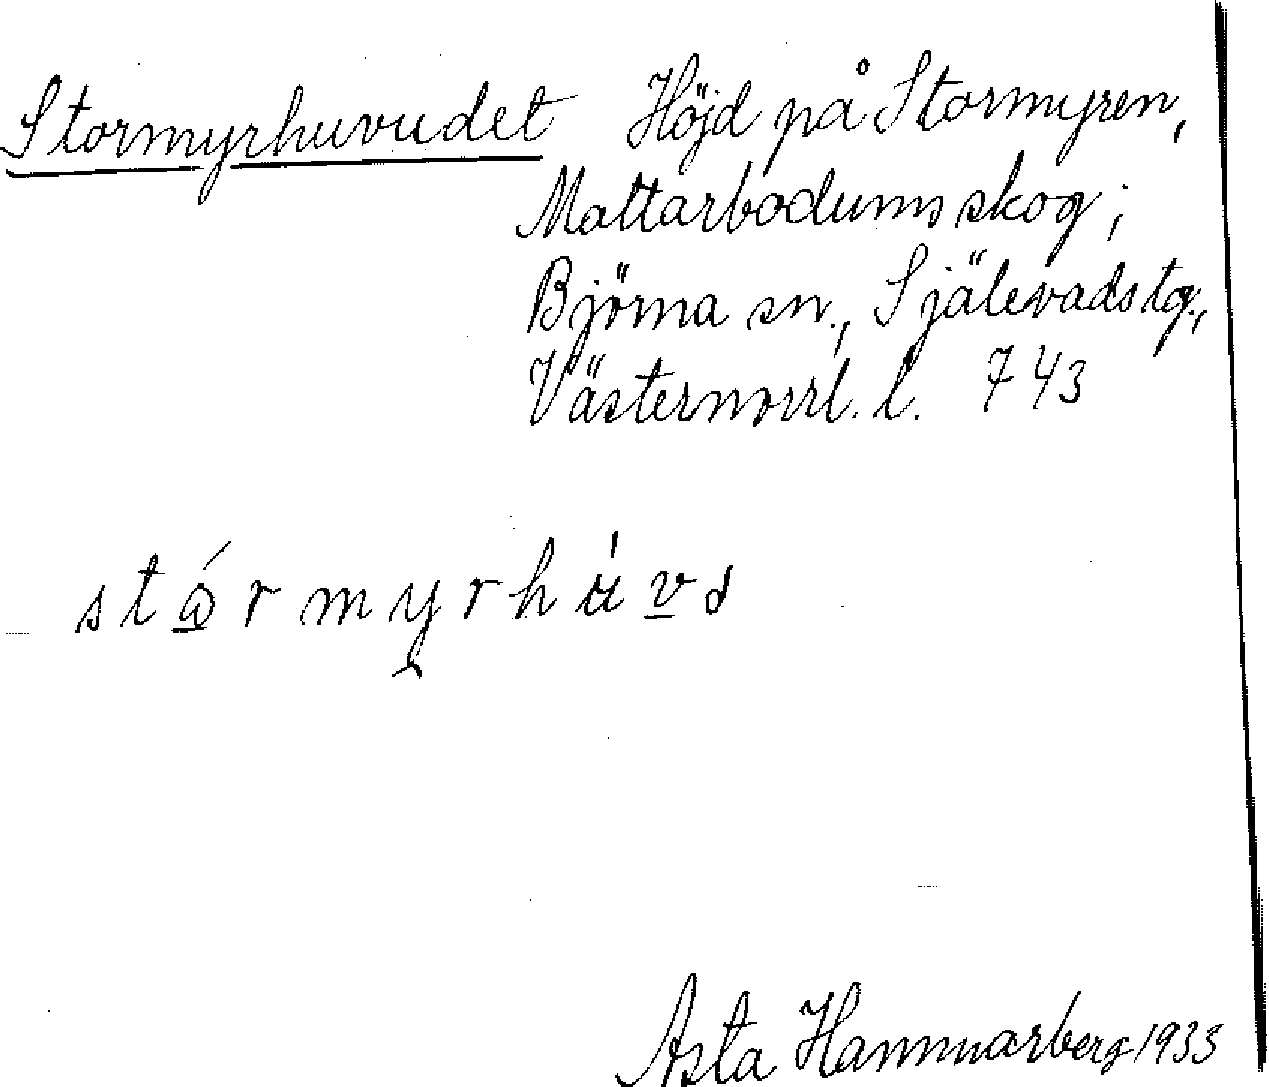 Stormyrhuvudet Höjd på Stormyren,
Mattarbodums skog;
Björna sn., Själevads tg.,
Västernorrl. l. 743
Asta Hammarberg 1933